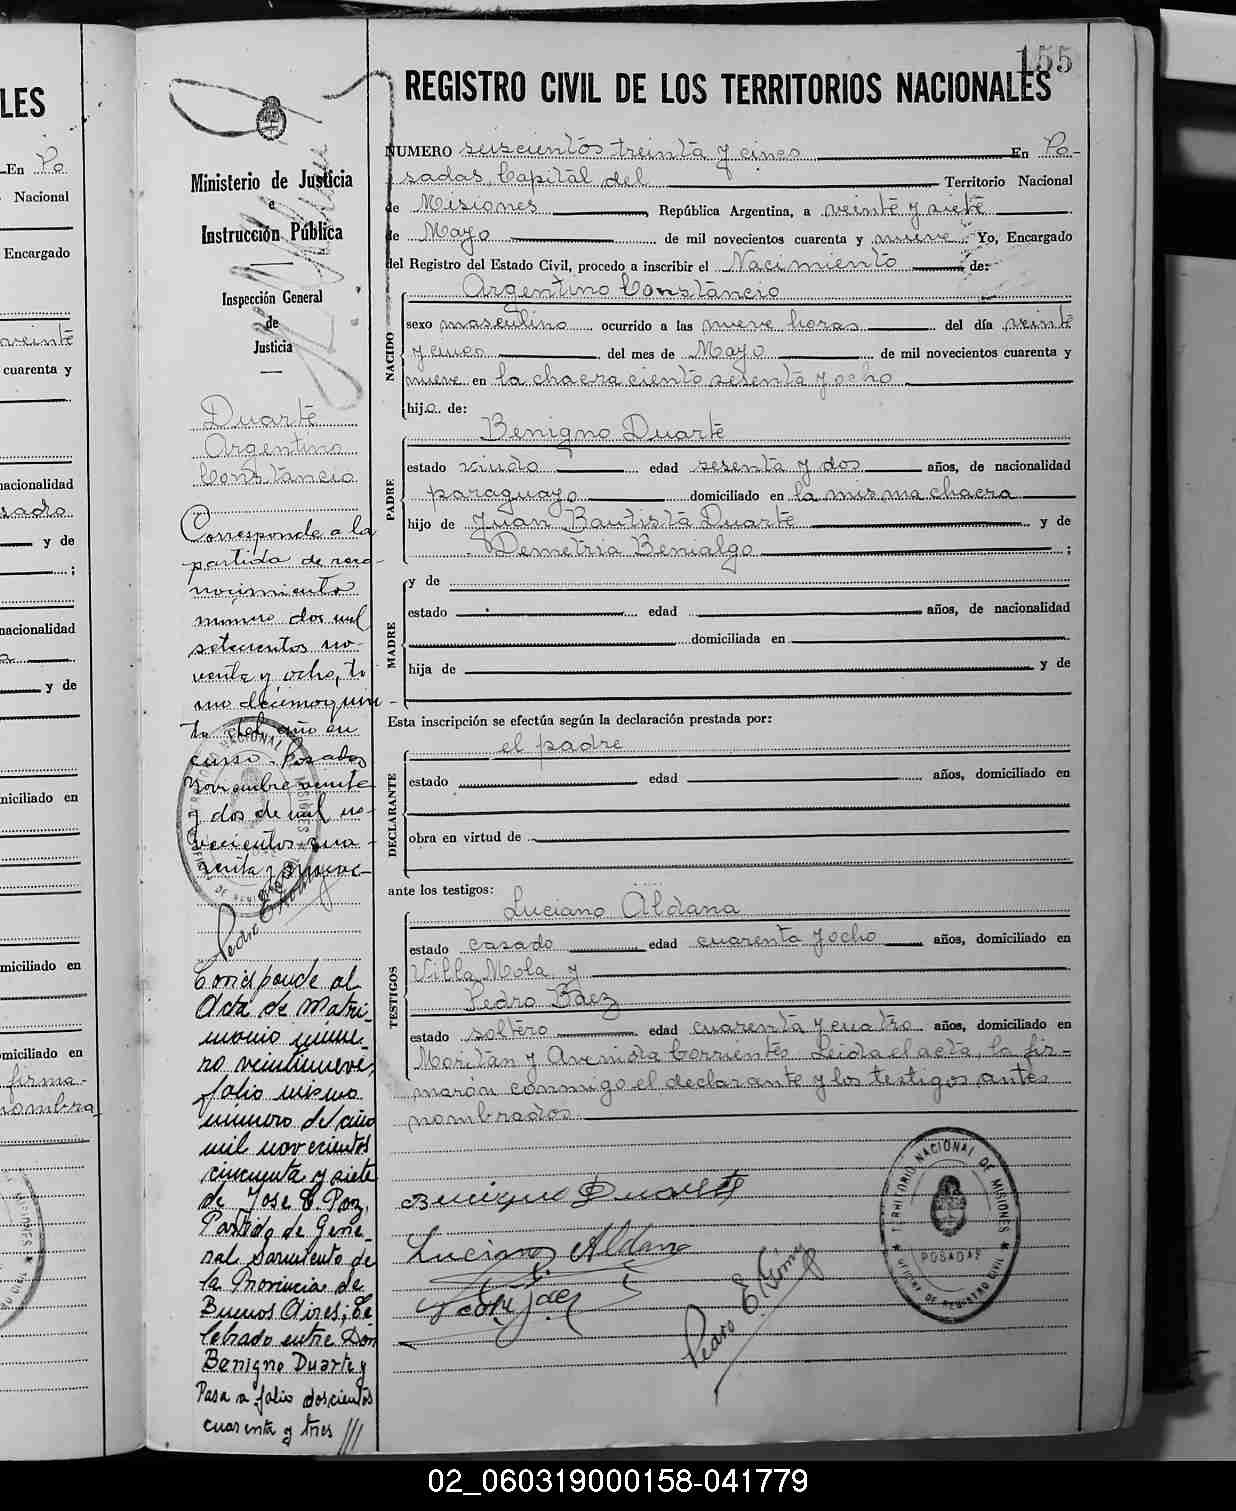 155
REGISTRO CIVIL DE LOS TERRITORIOS NACIONALES
Ministerio de Justicia
e
Instrucción Pública
Inspección General
de
Justicia
Duarte
Argentino
Constancio
Corresponde a la
partida de reco-
nocimiento
número dos mil
setecientos no-
venta y ocho, to
mo décimoquin-
to del año en
curso. Posadas
Noviembre veinte
y dos de mil no-
vecientos cua-
renta y nueve-
Corresponde al
Acta de Matri-
monio núme-
ro veintinueve,
folio mismo
número del año
mil novecientos
cincuenta y siete
de Jose C. Paz,
Partido de Gene-
ral Sarmiento de
la Provincia de
Buenos Aires; Ce
lebrado entre Don
Benigno Duarte y
Pasa a folio doscientos
cuarenta y tres ///
NUMERO seiscientos treinta y cinco En Po-
sadas, Capital del Territorio Nacional
de Misiones, República Argentina, a veinte y siete
de Mayo de mil novecientos cuarenta y nueve. Yo, Encargado
del Registro del Estado Civil, procedo a inscribir el Nacimiento de:
NACIDO
Argentino Constancio
sexo masculino ocurrido a las nueve horas del día veinte
y cinco del mes de Mayo de mil novecientos cuarenta y
nueve en la chacra ciento sesenta y ocho
hijo de:
PADRE
Benigno Duarte
estado viudo edad sesenta y dos años, de nacionalidad
paraguayo domiciliado en la misma chacra
hijo de Juan Bautista Duarte y de
Demetria Benialgo ;
MADRE
y de
estado edad años, de nacionalidad
domiciliada en
hija de y de
Esta inscripción se efectúa según la declaración prestada por:
DECLARANTE
el padre
estado edad años, domiciliado en
obra en virtud de
ante los testigos:
TESTIGOS
Luciano Aldana
estado casado edad cuarenta y ocho años, domiciliado en
Villa Mola y
Pedro Báez
estado soltero edad cuarenta y cuatro años, domiciliado en
Moritán y Avenida Corrientes. Leida el acta, la fir-
marón conmigo el declarante y los testigos antes
nombrados.
Duarte
Luciano Aldana
Pedro E.
TERRITORIO NACIONAL DE MISIONES
POSADAS
OFICINA DE REGISTRO CIVIL
LES
En Po
Nacional
Encargado
veinte
cuarenta y
nacionalidad
y de
;
nacionalidad
y de
miciliado en
miciliado en
omiciliado en
firma-
nombra
02_060319000158-041779